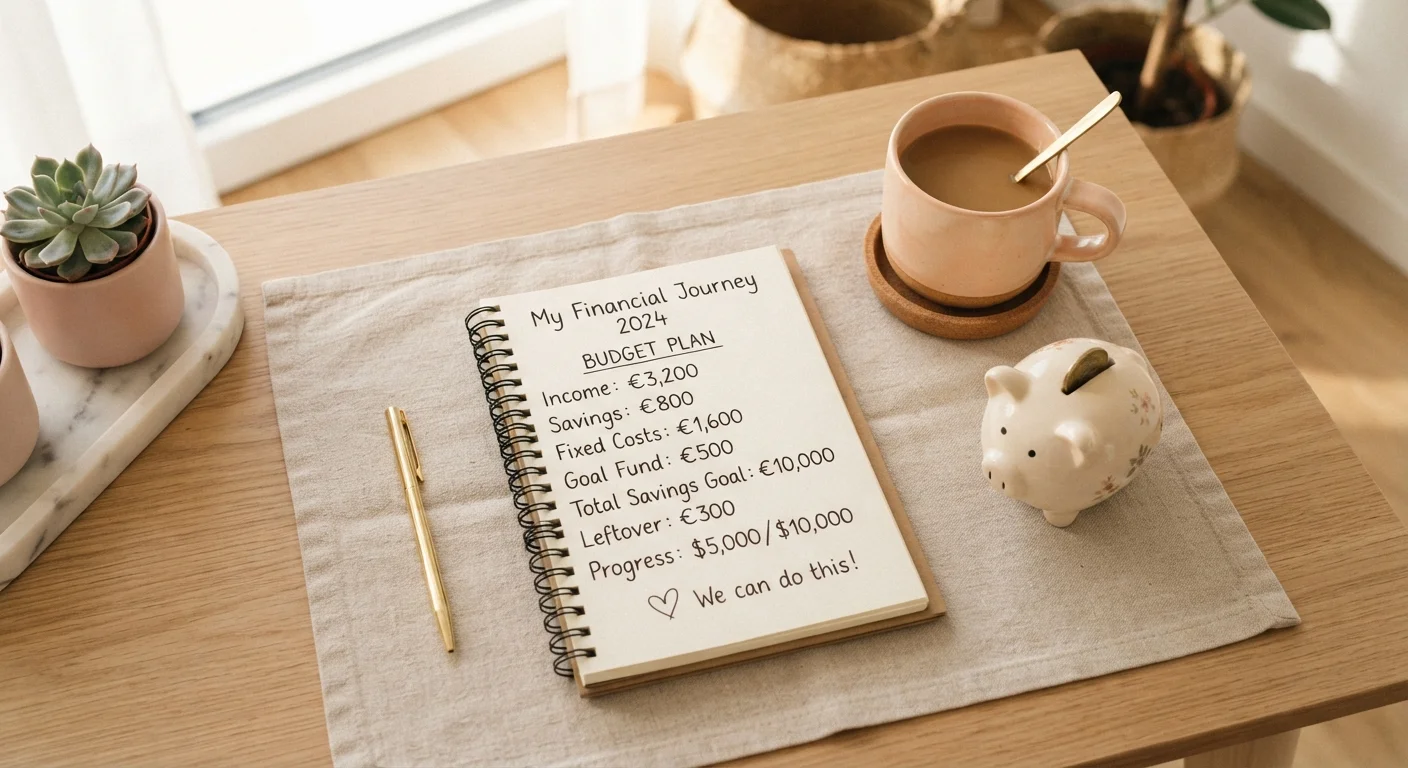 My Financial Journey
2024
BUDGET PLAN
Income: €3,200
Savings: €800
Fixed Costs: €1,600
Goal Fund: €500
Total Savings Goal: €10,000
Leftover: €300
Progress: $5,000/$10,000
♡ We can do this!